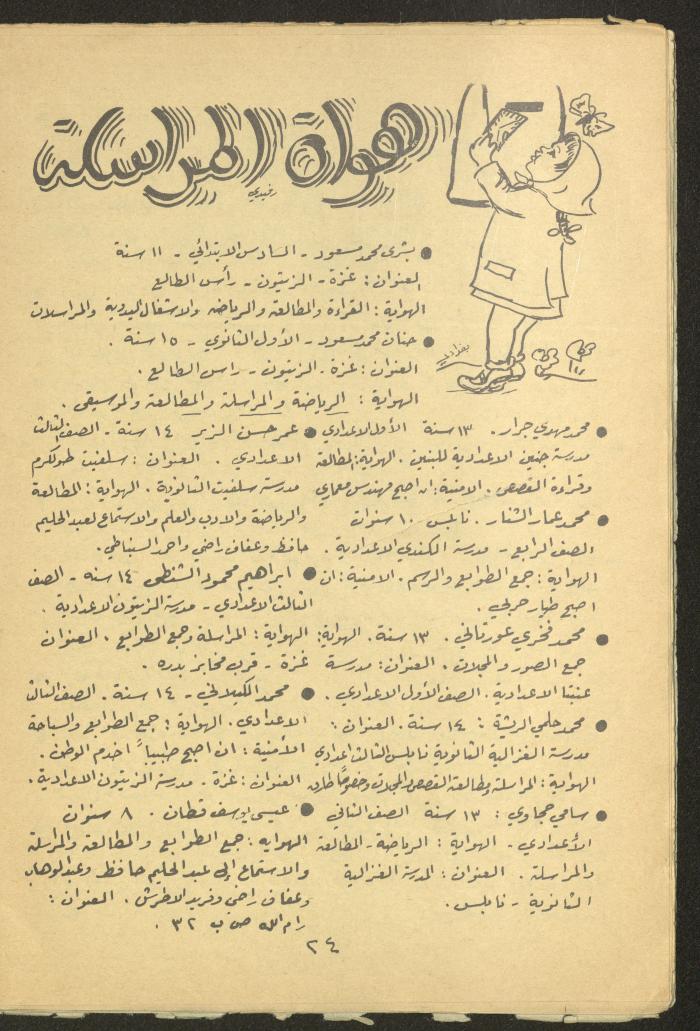 هواة المراسلة
رفيدي
● بشرى محمد مسعود - السادس الابتدائي - ١١ سنة
العنوان : غزة - الزيتون - رأس الطالع
الهواية : القراءة والمطالعة والرياضه والاشغال اليدوية والمراسلات
● حنان محمد مسعود - الأول الثانوي - ١٥ سنة .
العنوان : غزة - الزيتون - راس الطالع .
الهواية : الرياضة والمراسلة والمطالعة والموسيقى .
● محمد مهدي جرار . ١٣ سنة الأول الاعدادي
مدرسة جنين الاعدادية للبنين . الهواية : المطالعة
وقراءة القصص . الامنية : ان اصبح مهندس معماري
● محمد عمار الشنار . نابلس ١٠ سنوات
الصف الرابع - مدرسة الكندي الاعدادية .
الهواية : جمع الطوابع والرسم . الامنية : ان
اصبح طيار حربي .
● محمد فخري عورتاني . ١٣ سنة . الهواية :
جمع الصور والمجلات . العنوان : مدرسة
عنبتا الاعدادية . الصف الأول الاعدادي .
● محمد حلمي الريشة : ١٤ سنة . العنوان :
مدرسة الغزالية الثانوية نابلس الثالث اعدادي
الهواية : المراسلة ومطالعة القصص والمجلات وخصوصًا طارق
● سامي حجاوي : ١٣ سنة الصف الثاني
الأعدادي - الهواية : الرياضة - المطالعة
والمراسلة . العنوان : المدرسة الغزالية
الثانوية - نابلس .
● عمر حسن الزير ١٤ سنة - الصف الثالث
الاعدادي . العنوان : سلفيت طولكرم
مدرسة سلفيت الثانوية . الهواية : المطالعة
والرياضة والادب والعلم والاستماع لعبد الحليم
حافظ وعفاف راضي واحمد السنباطي .
● ابراهيم محمود الشنطي ١٤ سنة - الصف
الثالث الاعدادي - مدرسة الزيتون الاعدادية .
الهواية : المراسلة وجمع الطوابع . العنوان
غزة - قرب مخابز بدره .
● محمد الكيلاني - ١٤ سنة . الصف الثالث
الاعدادي . الهواية : جمع الطوابع والسباحة
الأمنية : ان اصبح طبيباً اخدم الوطن .
العنوان : غزة . مدرسة الزيتون الاعدادية .
● عيسى يوسف قطان . ٨ سنوات
الهوايه : جمع الطوابع والمطالعة والمراسلة
والاستماع إلى عبد الحليم حافظ وعبد الوهاب
وعفاف راضي وفريد الاطرش . العنوان :
رام الله ص ب ٣٢ .
٢٤